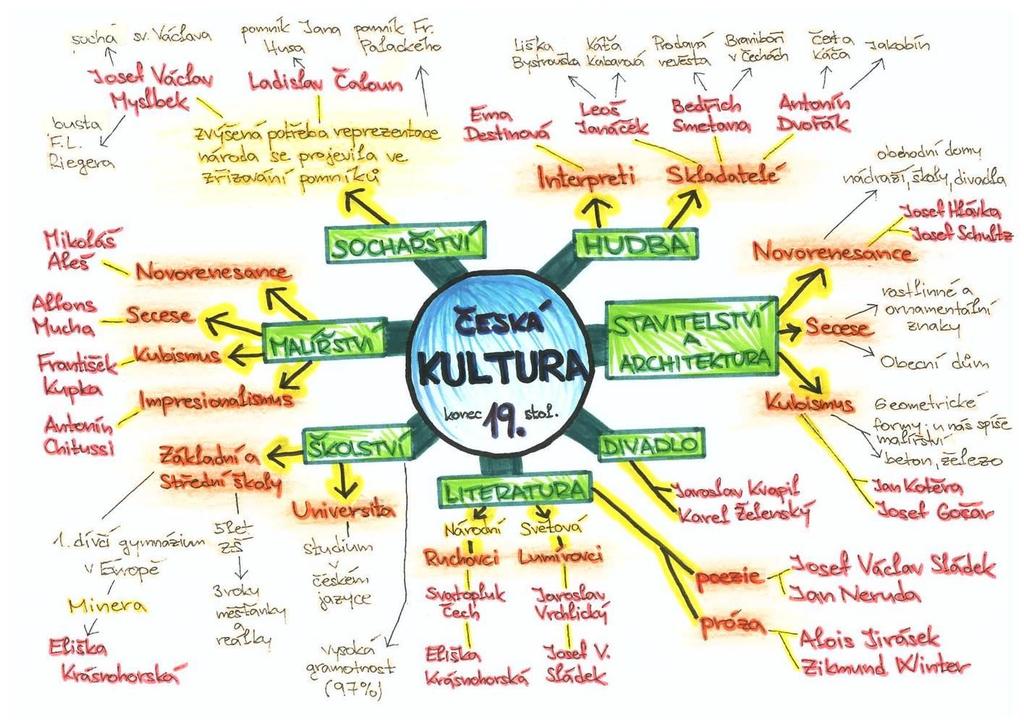 ČESKÁ
KULTURA
konec 19. stol.
SOCHAŘSTVÍ
zvýšená potřeba reprezentace
národa se projevila ve
zřizování pomníků
Josef Václav
Myslbek
socha sv. Václava
busta
F.L.
Riegera
Ladislav Šaloun
pomník Jana
Husa
pomník Fr.
Palackého
HUDBA
Interpreti
Ema
Destinová
Skladatelé
Leoš
Janáček
Liška
Bystrouška
Káťa
Kabanová
Bedřich
Smetana
Prodaná
nevěsta
Braniboři
v Čechách
Antonín
Dvořák
Čert a
Káča
Jakobín
STAVITELSTVÍ
A
ARCHITEKTURA
Novorenesance
obchodní domy
nádraží, školy, divadla
Josef Hlávka
Josef Schultz
Secese
rostlinné a
ornamentální
znaky
Obecní dům
Kubismus
Geometrické
formy; u nás spíše
malířství
beton, železo
Jan Kotěra
Josef Gočár
DIVADLO
Jaroslav Kvapil
Karel Želenský
LITERATURA
Národní
Ruchovci
Svatopluk
Čech
Eliška
Krásnohorská
Světová
Lumírovci
Jaroslav
Vrchlický
Josef V.
Sládek
poezie
Josef Václav Sládek
Jan Neruda
próza
Alois Jirásek
Zikmund Winter
ŠKOLSTVÍ
Základní a
Střední školy
1. dívčí gymnázium
v Evropě
Minerva
Eliška
Krásnohorská
5 let
ZŠ
3 roky
měšťanky
a
reálky
Universita
studium
v
českém
jazyce
vysoká
gramotnost
(97%)
MALÍŘSTVÍ
Novorenesance
Mikoláš
Aleš
Secese
Alfons
Mucha
Kubismus
František
Kupka
Impresionalismus
Antonín
Chitussi